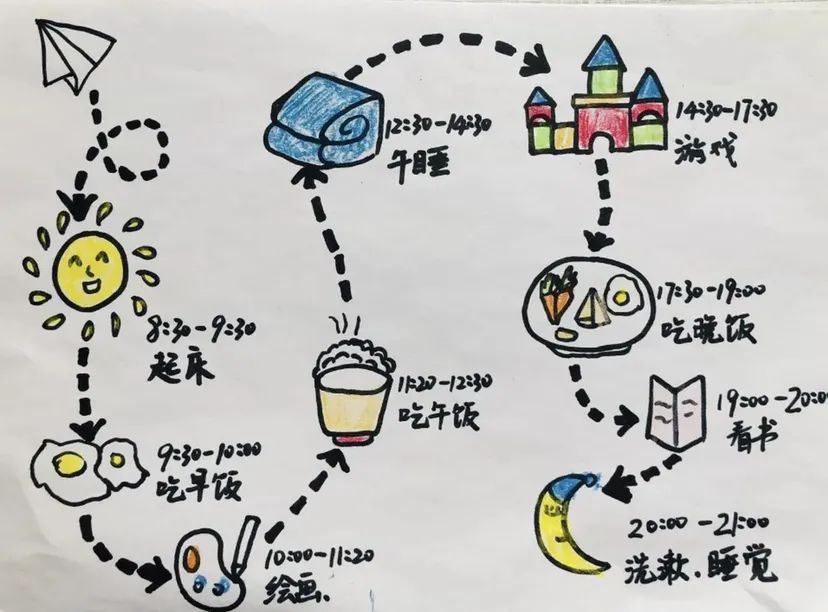 8:30-9:30
起床
9:30-10:00
吃早饭
10:00-11:20
绘画.
11:20-12:30
吃午饭
12:30-14:30
午睡
14:30-17:30
游戏
17:30-19:00
吃晚饭
19:00-20:00
看书
20:00-21:00
洗漱.睡觉